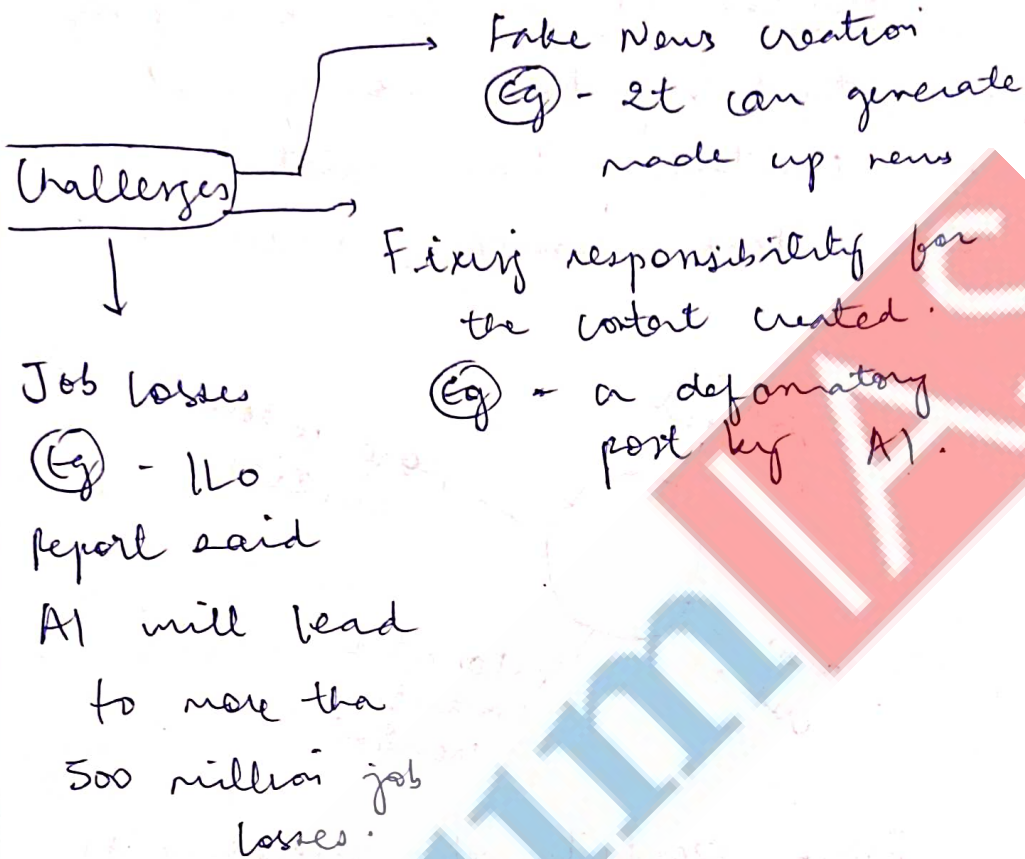 Fake News creation
Eg - It can generate
made up news
Challenges
Fixing responsibility for
the content created.
Eg - a defamatory
post by AI.
Job losses
Eg - ILO
Report said
AI will lead
to more tha
500 million job
losses.
IAS
um